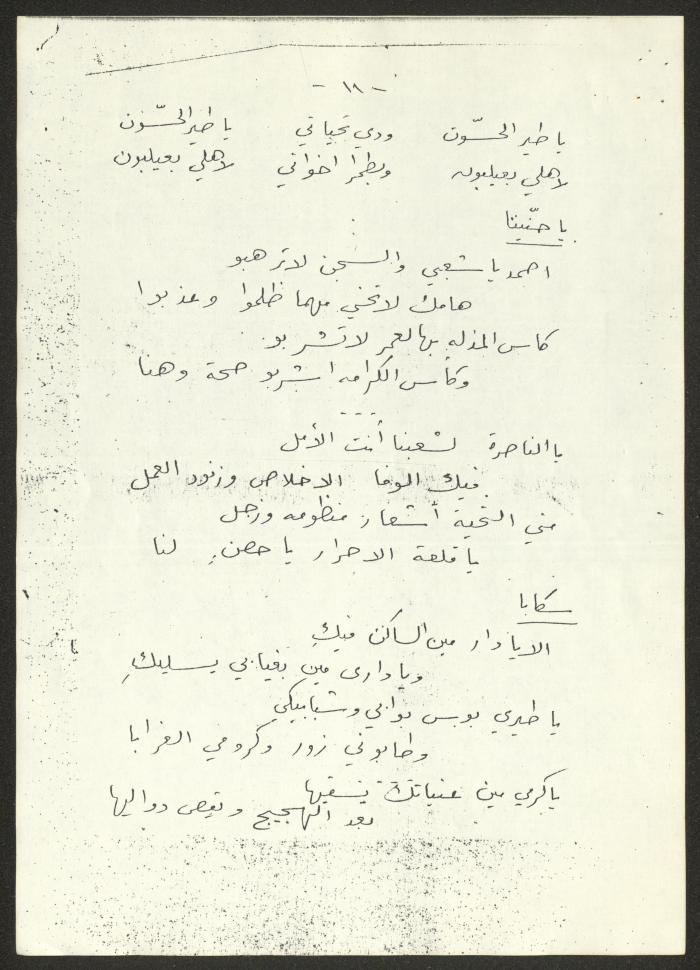 - ١٨ -
يا طير الحسّون ودي تحياتي يا طير الحسّون
لاهلي بعيلبون وبطحرا اخواني لاهلي بعيلبون
يا حنّينا
اصمد يا شعبي والسجن لا ترهبو
هامك لا تحني مهما ظلموا وعذبوا
كاس المذله بهالعمر لا تشربو
وكأس الكرامه اشربو صحة وهنا
يا الناصرة لشعبنا أنت الأمل
فيك الوفا الاخلاص وزنود العمل
مني التحية أشعار منظومه وزجل
يا قلعة الاحرار يا حصنٍ لنا
سكابا
الا يا دار مين الساكن فيكِ
ويا داري مين بغيابي يسليكِ
يا طيري بوس بوابي وشبابيكي
وطابوني زور وكرومي الغرابا
يا كرمي مين عنباتك يسقيها
بعد الهجيج ويقص دواليها